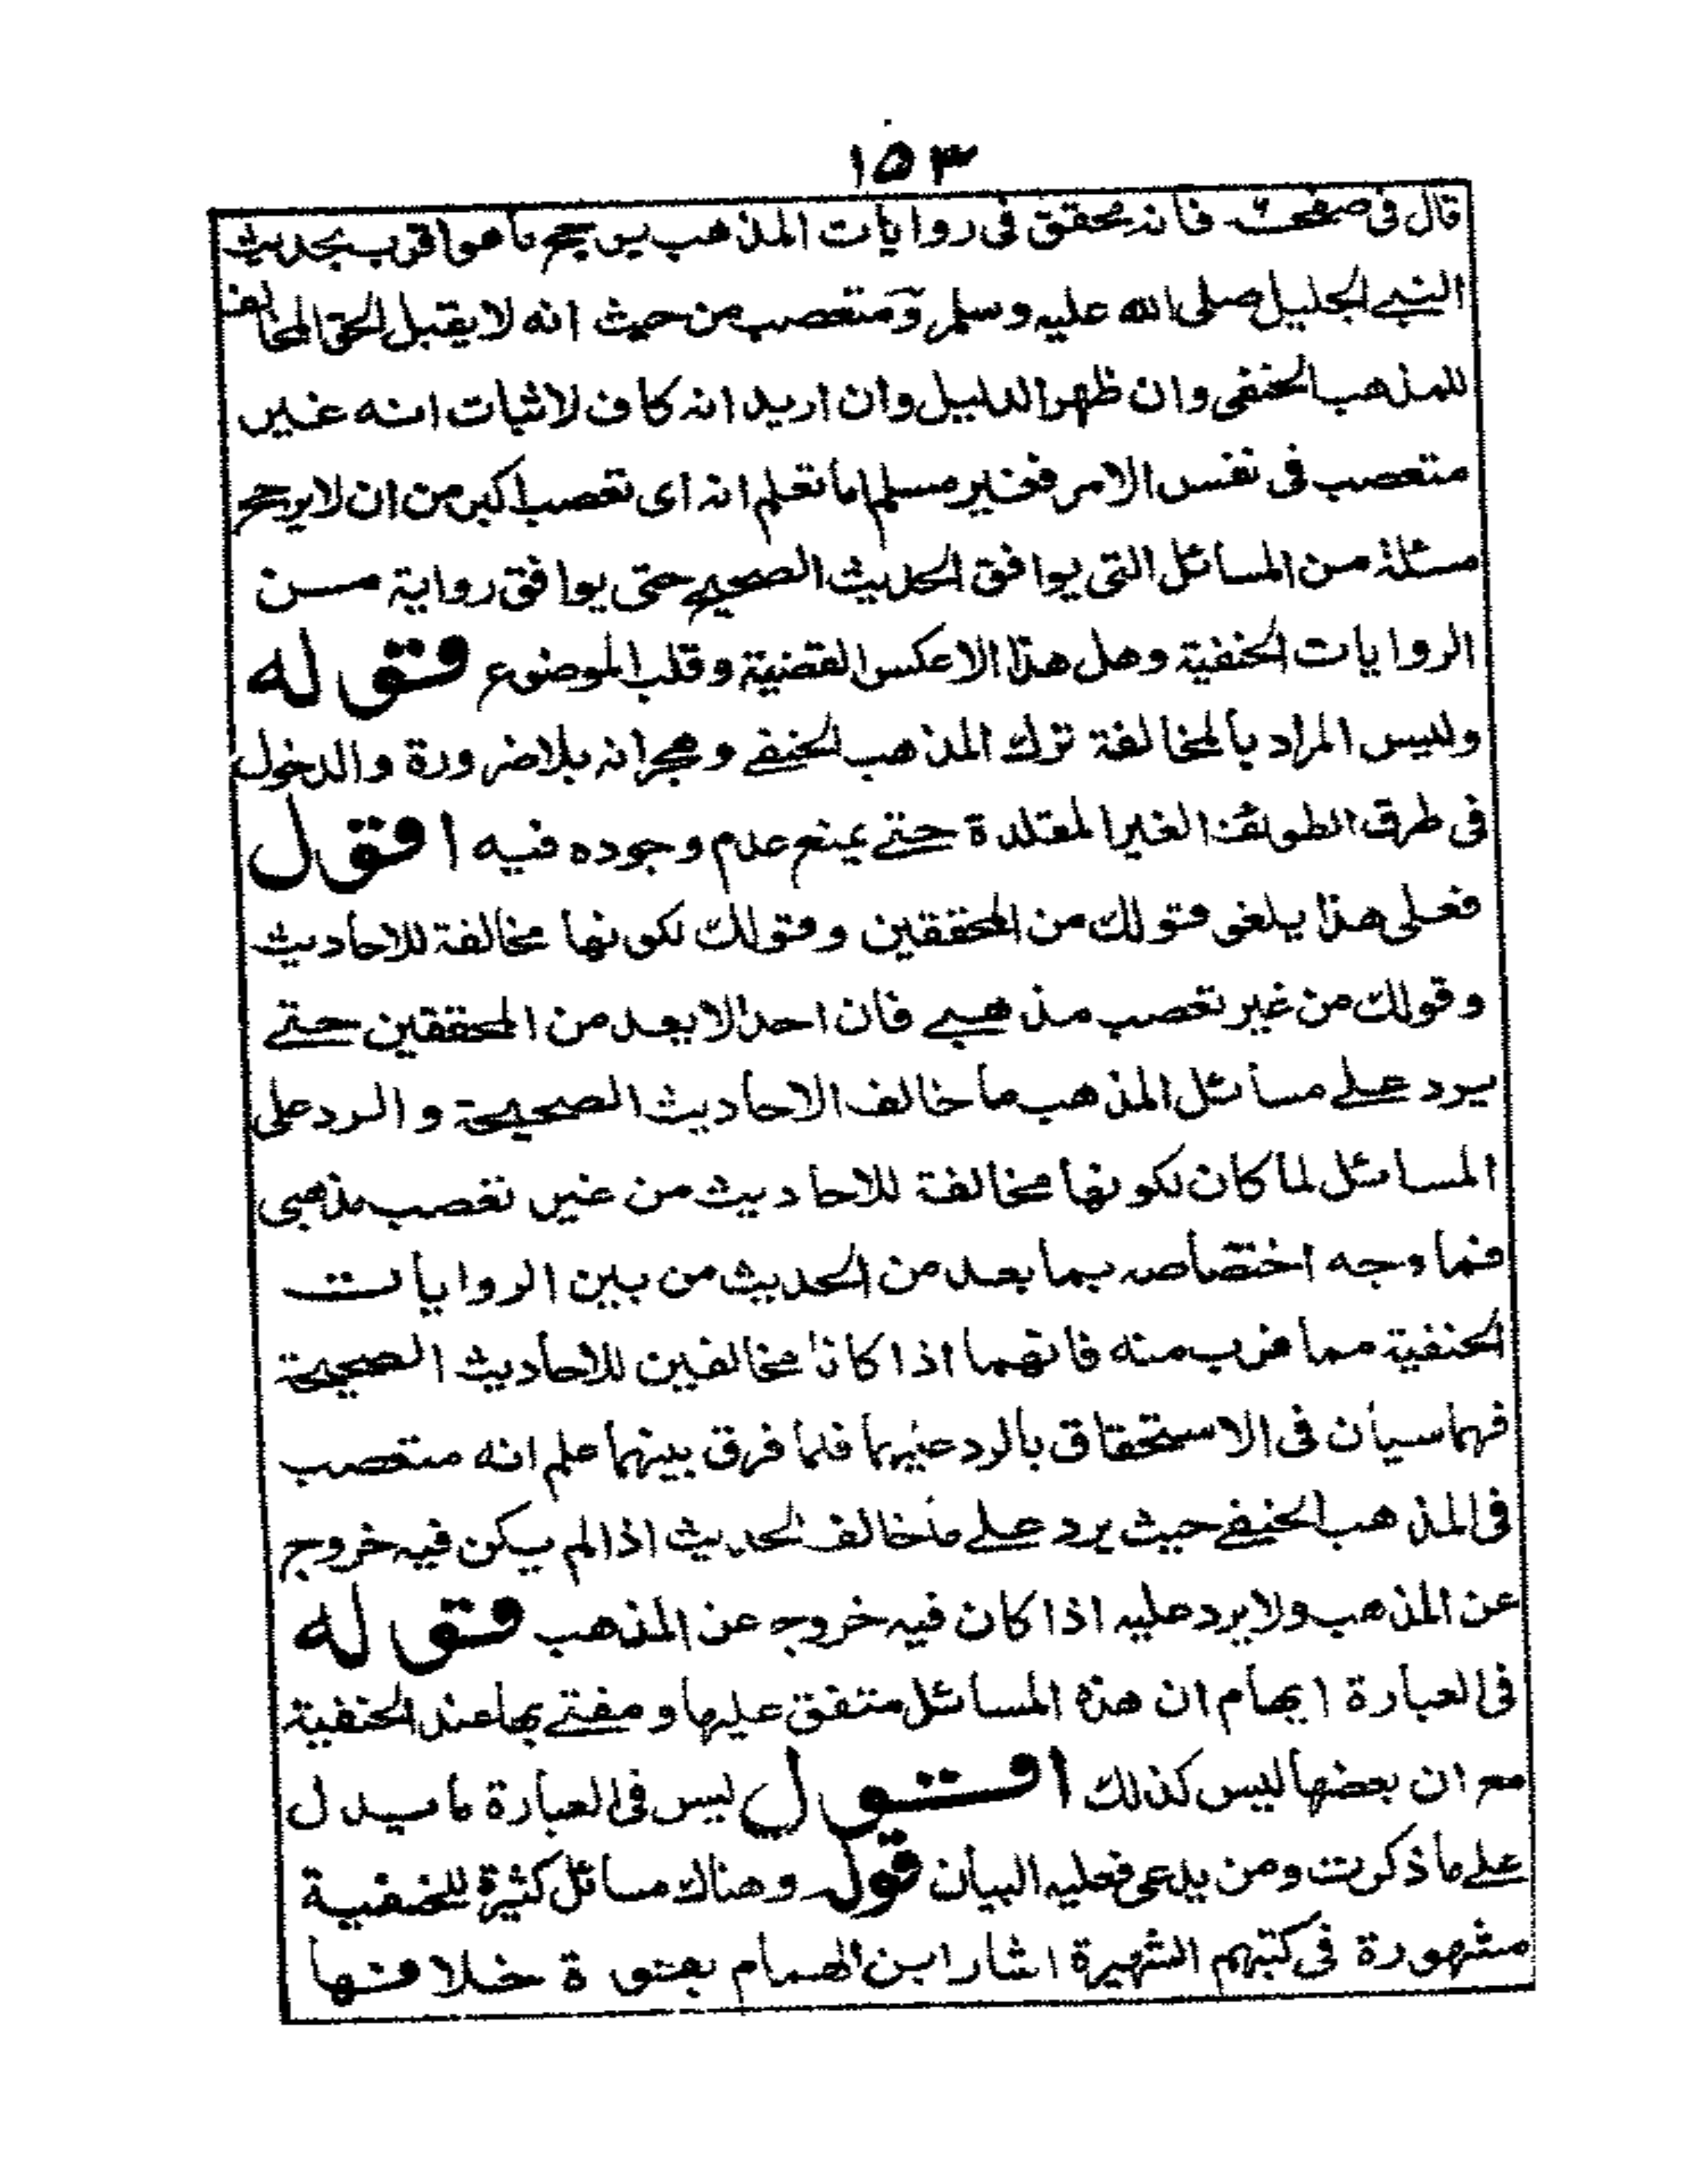 ١٥٣
قال فى صفحة فانه محقق فى روايات المذهب يرجح ما هو اقرب بحديث
النبى الجليل صلى الله عليه وسلم ومتعصب من حيث انه لا يقبل الحق المخالف
للمذهب الحنفى وان ظهر الدليل وان اريد انه كاف لاثبات انه غير
متعصب فى نفس الامر فغير مسلم اما تعلم انه اى تعصب اكبر من ان لا يرجح
مسئلة من المسائل التى يوافق الحديث الصحيح حتى يوافق رواية من
الروايات الحنفية وهل هذا الا عكس القضية وقلب الموضوع قوله
وليس المراد بالمخالفة ترك المذهب الحنفے وهجرانه بلا ضرورة والدخول
فى طرق الطوائف الغير المقلدة حتے يمنع عدم وجوده فيه اقول
فعلى هذا يلغى قولك من المحققين وقولك لكونها مخالفة للاحاديث
وقولك من غير تعصب مذهبے فان احدا لا يعد من المحققين حتے
يرد علے مسائل المذهب ما خالف الاحاديث الصحيحة والرد على
المسائل لما كان لكونها مخالفة للاحاديث من غير تعصب مذهبى
فما وجه اختصاصه بما بعد من الحديث من بين الروايات
الحنفية مما قرب منه فانهما اذا كانا مخالفين للاحاديث الصحيحة
فهما سيان فى الاستحقاق بالرد عليهما فلما فرق بينهما علم انه متعصب
فى المذهب الحنفے حيث يرد علے ما خالف الحديث اذا لم يكن فيه خروج
عن المذهب ولا يرد عليه اذا كان فيه خروج عن المذهب قوله
فى العبارة ايهام ان هذه المسائل متفق عليها ومفتے بها عند الحنفية
مع ان بعضها ليس كذلك اقول ليس فى العبارة ما يدل
علے ما ذكرت ومن يدعى فعليه البيان قوله وهناك مسائل كثيرة للحنفية
مشهورة فى كتبهم الشهيرة اشار ابن الهمام بقوة خلافها